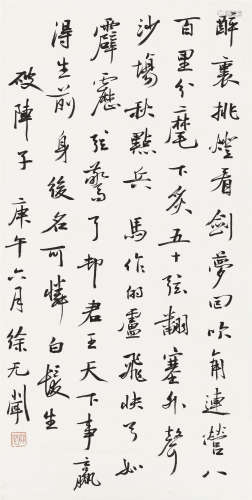 醉裏挑燈看劍夢回吹角連營八
百里分麾下炙五十弦翻塞外聲
沙場秋點兵 馬作的盧飛快弓如
霹靂弦驚了却君王天下事贏
得生前身後名可憐白髮生
破陣子 庚午六月徐无聞